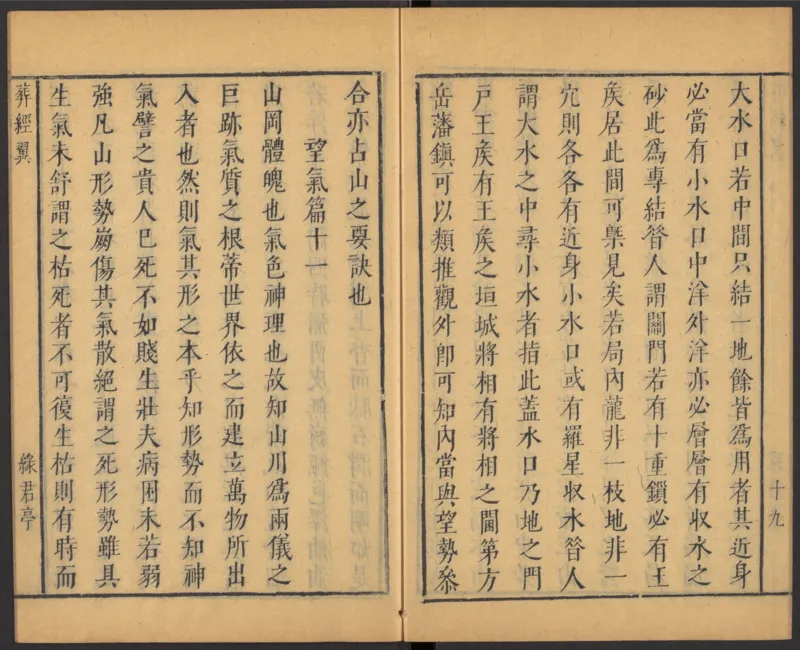 十九
大水口若中間只結一地餘皆爲用者其近身
必當有小水口中洋外洋亦必層層有收水之
砂此爲專結昝人謂關門若有十重鎖必有王
矦居此間可槩見矣若局內龍非一枝地非一
穴則各各有近身小水口或有羅星収水昝人
謂大水之中尋小水者指此蓋水口乃地之門
戸王矦有王矦之垣城將相有將相之閫第方
岳藩鎭可以類推觀外卽可知內當與望勢叅
合亦占山之要訣也
望氣篇十一
山岡體魄也氣色神理也故知山川爲兩儀之
巨跡氣質之根蒂世界依之而建立萬物所出
入者也然則氣其形之本乎知形勢而不知神
氣譬之貴人巳死不如賤生壯夫病困未若弱
強凡山形勢崩傷其氣散絕謂之死形勢雖具
生氣未舒謂之枯死者不可復生枯則有時而
葬經翼
綠君亭